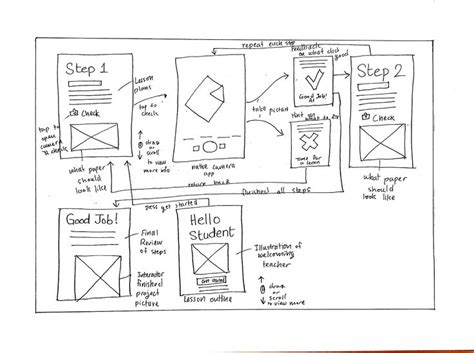 repeat each step
feedback
on what did
good
Step 1
Lesson
plans
Check
tap to
open
camera
& check
what paper
should
look like
tap to
check
draw
or
scroll
to view
more info
native camera
app
take picture
Good
Job!
Time for
a lesson
Step 2
Check
what paper
should
look like
return back
finished all steps
press get started
Good Job!
Final
Review
of steps
finished
project
picture
Hello
Student
Get started
Lesson outline
Illustration of
welcoming
teacher
draw
or
scroll
to view more